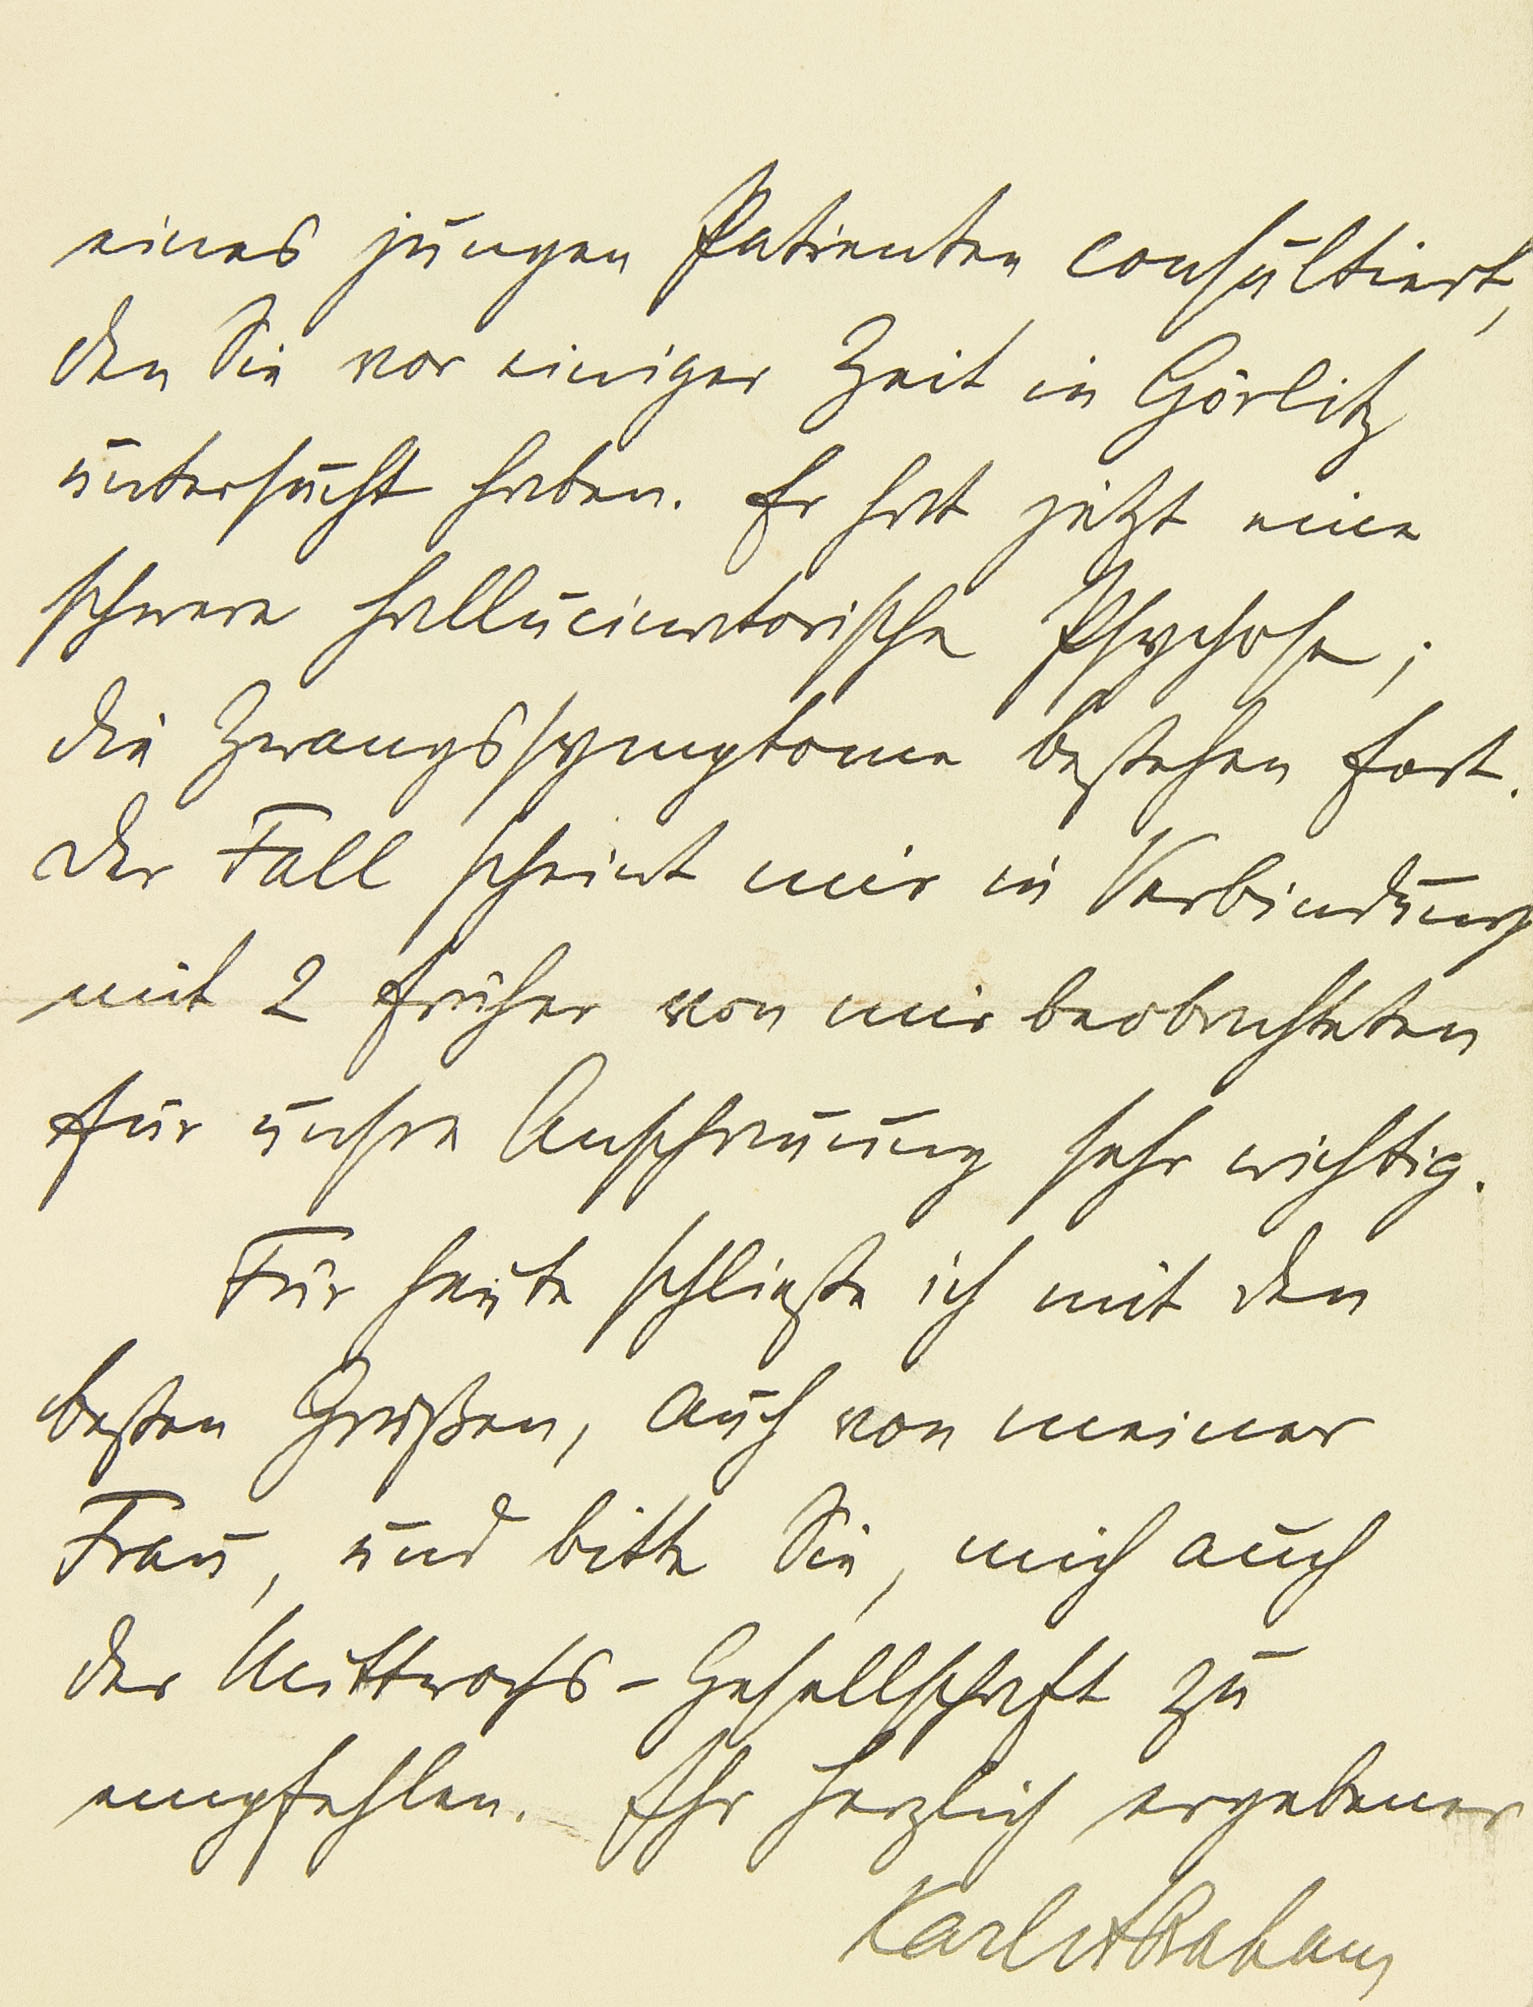 eines jungen Patienten consultiert,
den Sie vor einiger Zeit in Görlitz
untersucht haben. Er hat jetzt eine
schwere hallucinatorische Psychose;
die Zwangssymptome bestehen fort.
Der Fall scheint mir in Verbindung
mit 2 früher von mir beobachteten
für unsre Anschauung sehr wichtig.
Für heute schließe ich mit den
besten Grüßen, auch von meiner
Frau, und bitte Sie, mich auch
der Mittwochs-Gesellschaft zu
empfehlen. Ihr herzlich ergebener
Karl Abraham